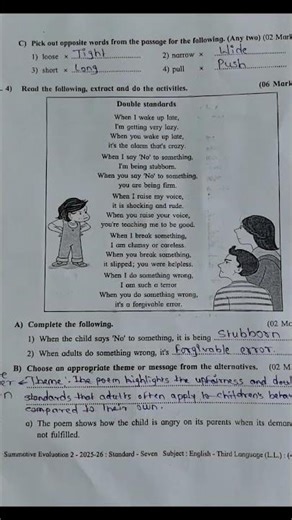 C) Pick out opposite words from the passage for the following. (Any two) (02 Mark
1) loose × Tight 2) narrow × Wide
3) short × Long 4) pull × Push
4) Read the following, extract and do the activities. (06 Mark
Double standards
When I wake up late,
I'm getting very lazy.
When you wake up late,
it's the alarm that's crazy.
When I say 'No' to something,
I'm being stubborn.
When you say 'No' to something,
you are being firm.
When I raise my voice,
it is shocking and rude.
When you raise your voice,
you're teaching me to be good.
When I break something,
I am clumsy or careless.
When you break something,
it slipped; you were helpless.
When I do something wrong,
I am such a terror
When you do something wrong,
it's a forgivable error.
A) Complete the following. (02 M
1) When the child says 'No' to something, it is being Stubborn
2) When adults do something wrong, it's forgivable error.
B) Choose an appropriate theme or message from the alternatives. (02 M
Theme: The poem highlights the unfairness and dou
standards that adults often apply to children's behav
compared to their own.
a) The poem shows how the child is angry on its parents when its deman
not fulfilled.
Summative Evaluation 2 - 2025-26 : Standard - Seven Subject : English - Third Language (L.L.) : (